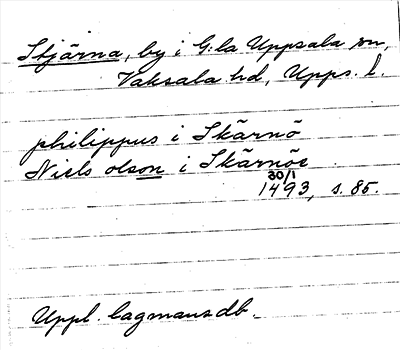 Stjärna, by i G:la Uppsala sn,
Vaksala hd, Upps. l.
philippus i Skärnö
Niels olson i Skärnöe
30/1
1493, s. 85.
Uppl. lagmansdb.